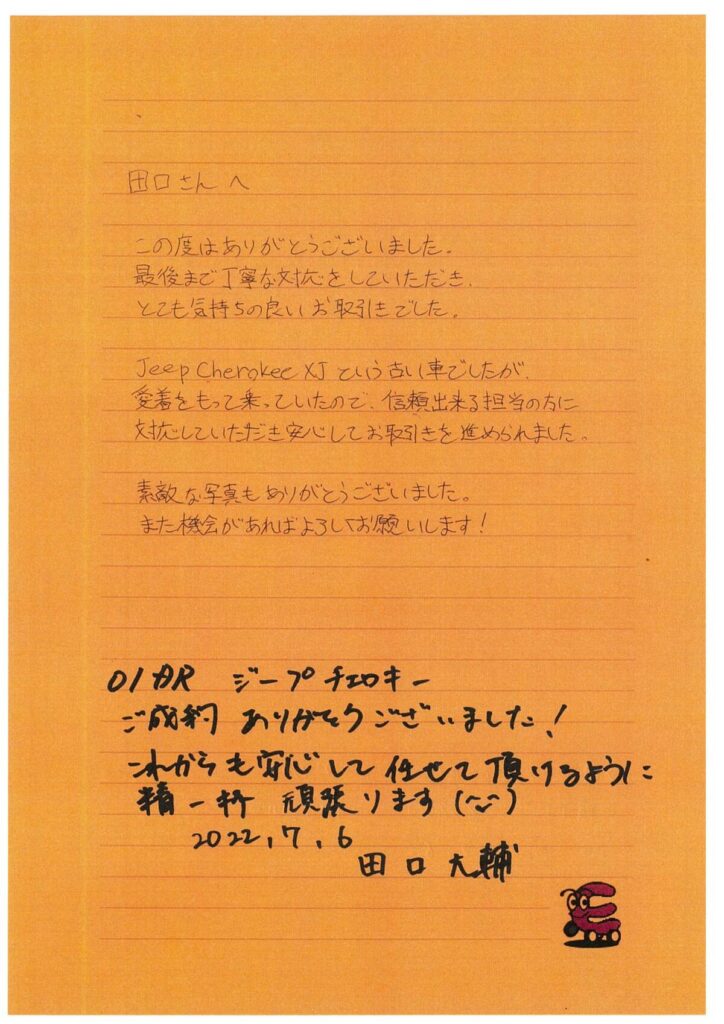 田口さんへ
この度はありがとうございました。
最後まで丁寧な対応をしていただき、
とても気持ちの良いお取引きでした。
Jeep Cherokee XJ という古い車でしたが、
愛着をもって乗っていたので、信頼出来る担当の方に
対応していただき安心してお取引きを進められました。
素敵な写真もありがとうございました。
また機会があればよろしくお願いします!
ジープチェロキー
ご成約 ありがとうございました!
これからも安心して任せて頂けるように
精一杯 頑張ります
2022,7,6
田口大輔